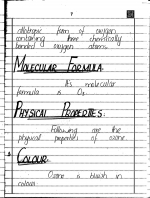 allotropic form of oxygen
containing three chemically
bonded oxygen atoms.
MOLECULAR FORMULA:
Its molecular
formula is O₃.
PHYSICAL PROPERTIES:
Following are the
physical properties of ozone.
COLOUR:
Ozone is bluish in
colour.